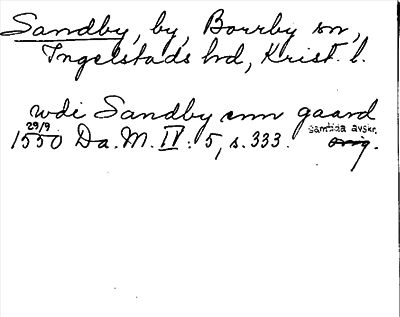 Sandby, by, Borrby sn,
Ingelstads hd, Krist. l.
udi Sandby enn gaard
29/9 samtida avskr.
1550 Da. M. IV: 5, s. 333. orig.